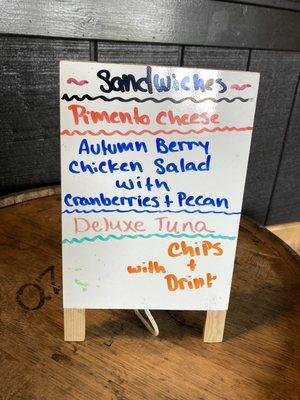 Sandwiches
Pimento cheese
Autumn Berry
Chicken Salad
with
Cranberries + Pecan
Deluxe Tuna
Chips
with +
Drink